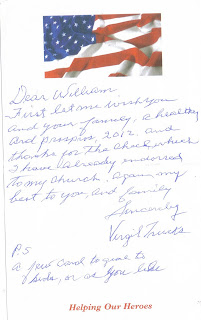 Dear William,
First let me wish you
and your family, a healthy
and prosp 2012. and
thanks for the check, which
I have already endorsed
to my church. Again, my
best to you, and family
Sincerely
Virgil Trucks
P.S
a few card to give to
kids, or as you like
Helping Our Heroes